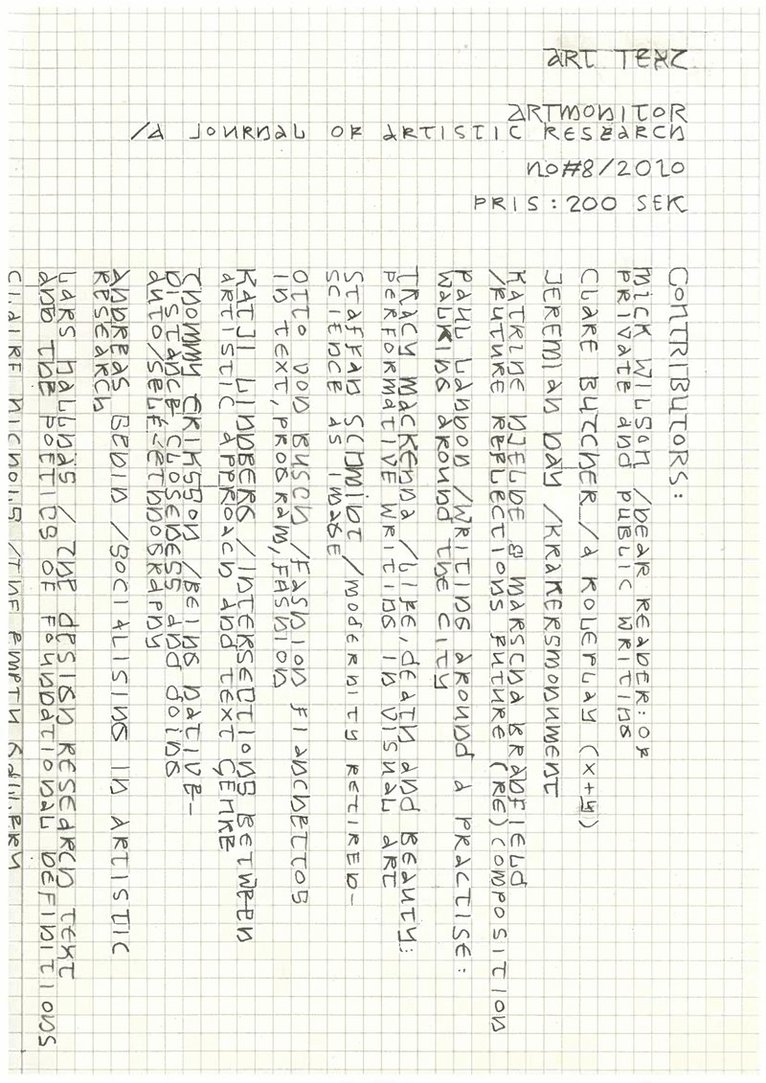 ART TEXT
ARTMONITOR
/A JOURNAL OF ARTISTIC RESEARCH
NO#8/2010
PRIS: 200 SEK
CONTRIBUTORS:
MICK WILSON /DEAR READER: OF
PRIVATE AND PUBLIC WRITING
CLARE BUTCHER /A ROLEPLAY (X+Y)
JEREMIAH DAY /KRAKERSMONUMENT
KATRINE HJELDE & MARSCHA BRADFIELD
/FUTURE REFLECTIONS FUTURE (RE)COMPOSITION
PAUL LANDON /WRITING AROUND A PRACTISE:
WALKING AROUND THE CITY
TRACY MACKENNA /LIFE, DEATH AND BEAUTY:
PERFORMATIVE WRITING IN VISUAL ART
STAFFAN SCHMIDT /MODERNITY RETIRED-
SCIENCE AS IMAGE
OTTO VON BUSCH /FASHION FIANCHETTOS
IN TEXT, PROGRAM, FASHION
KATJI LINDBERG /INTERSECTIONS BETWEEN
ARTISTIC APPROACH AND TEXT GENRE
THOMMY ERIKSSON /BEING NATIVE-
DISTANCE, CLOSENESS AND DOING
AUTO/SELF-ETHNOGRAPHY
ANDREAS GEDIN /SOCIALISING IN ARTISTIC
RESEARCH
LARS HALLNÄS /THE DESIGN RESEARCH TEXT
AND THE POETICS OF FOUNDATIONAL DEFINITIONS
CLAIRE NICHOLS /THE EMPTY GALLERY